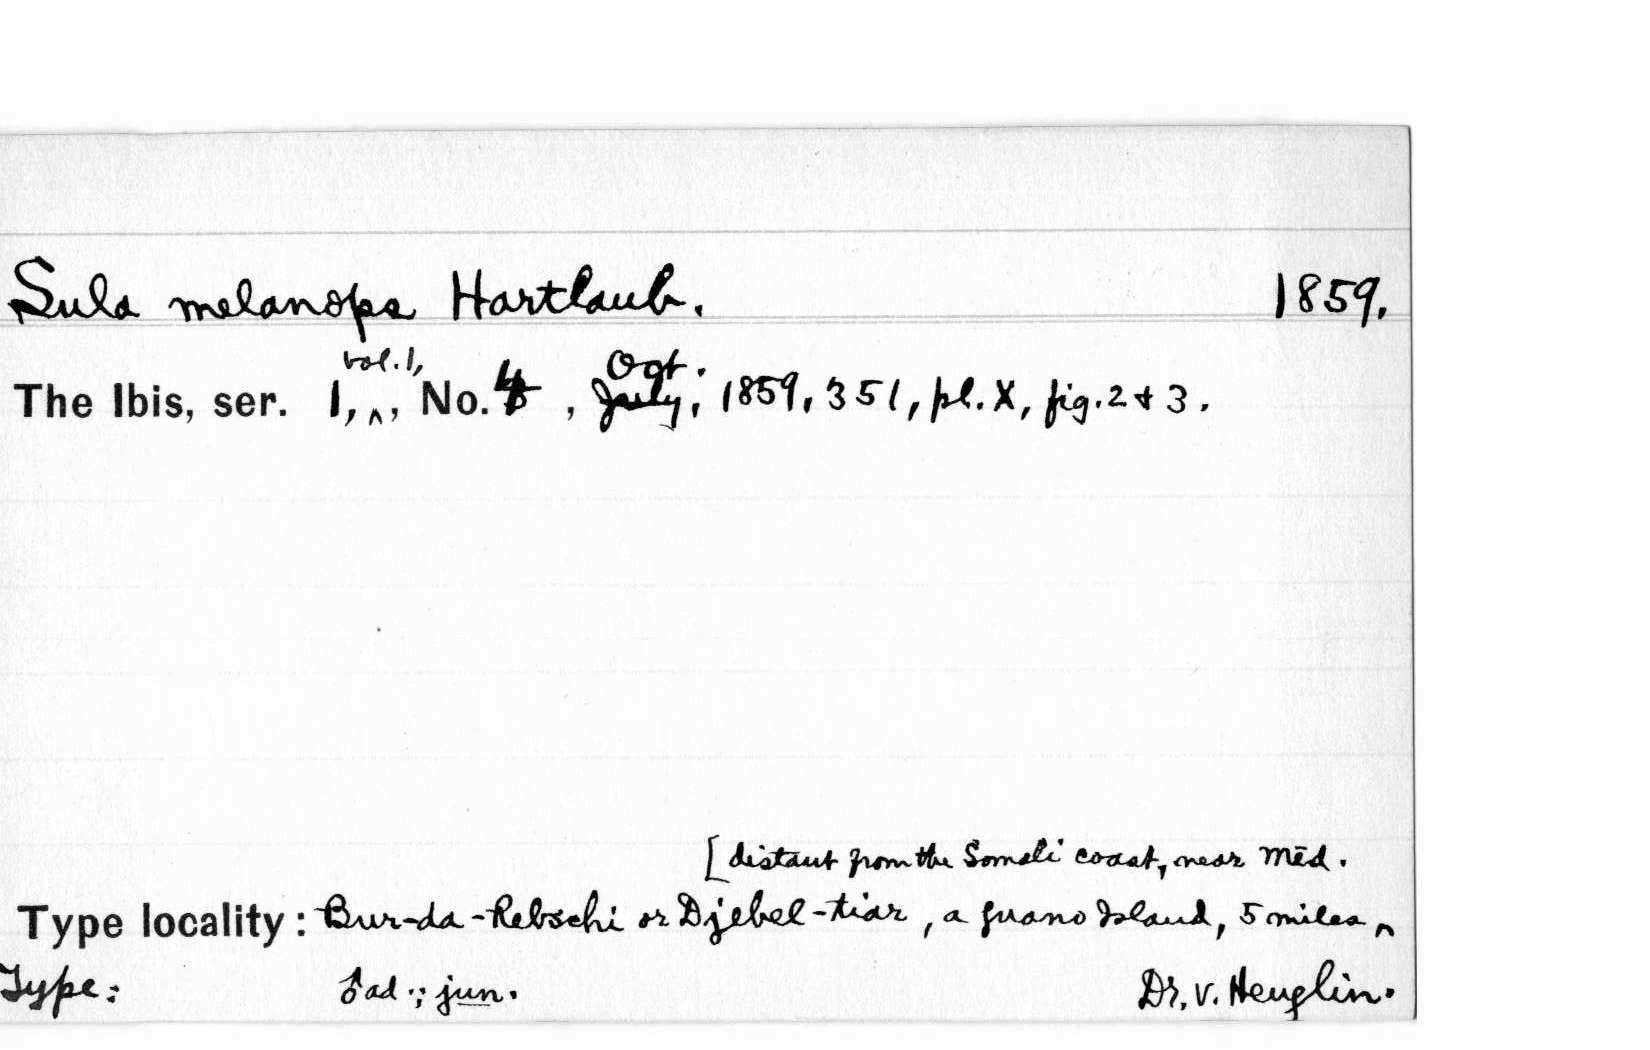 Sula melanops Hartlaub. 1859.
vol. 1, Oct.
The Ibis, ser. 1, ^, No. 4, July, 1859, 351, pl. X, fig. 2 + 3.
[distant from the Somali coast, near Mēd.
Type locality: Bur-da-Rebschi or Djebel-tiar, a guano Island, 5 miles ^
Type: ♂ ad.; jun. Dr. v. Heuglin.